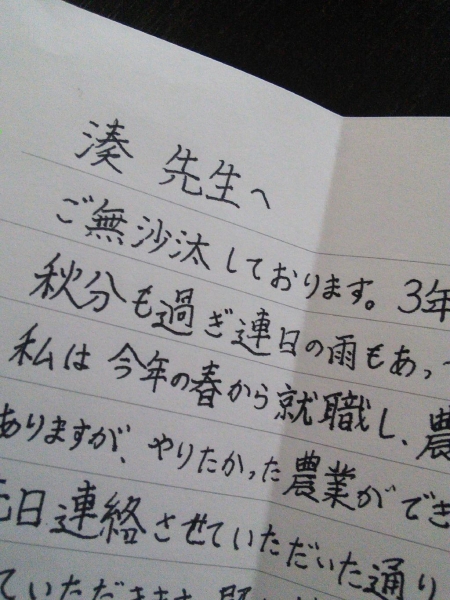 湊 先生へ
ご無沙汰しております。3年
秋分も過ぎ連日の雨もあっ
私は今年の春から就職し、農
ありますが、やりたかった農業ができ
日連絡させていただいた通り
ていただきます